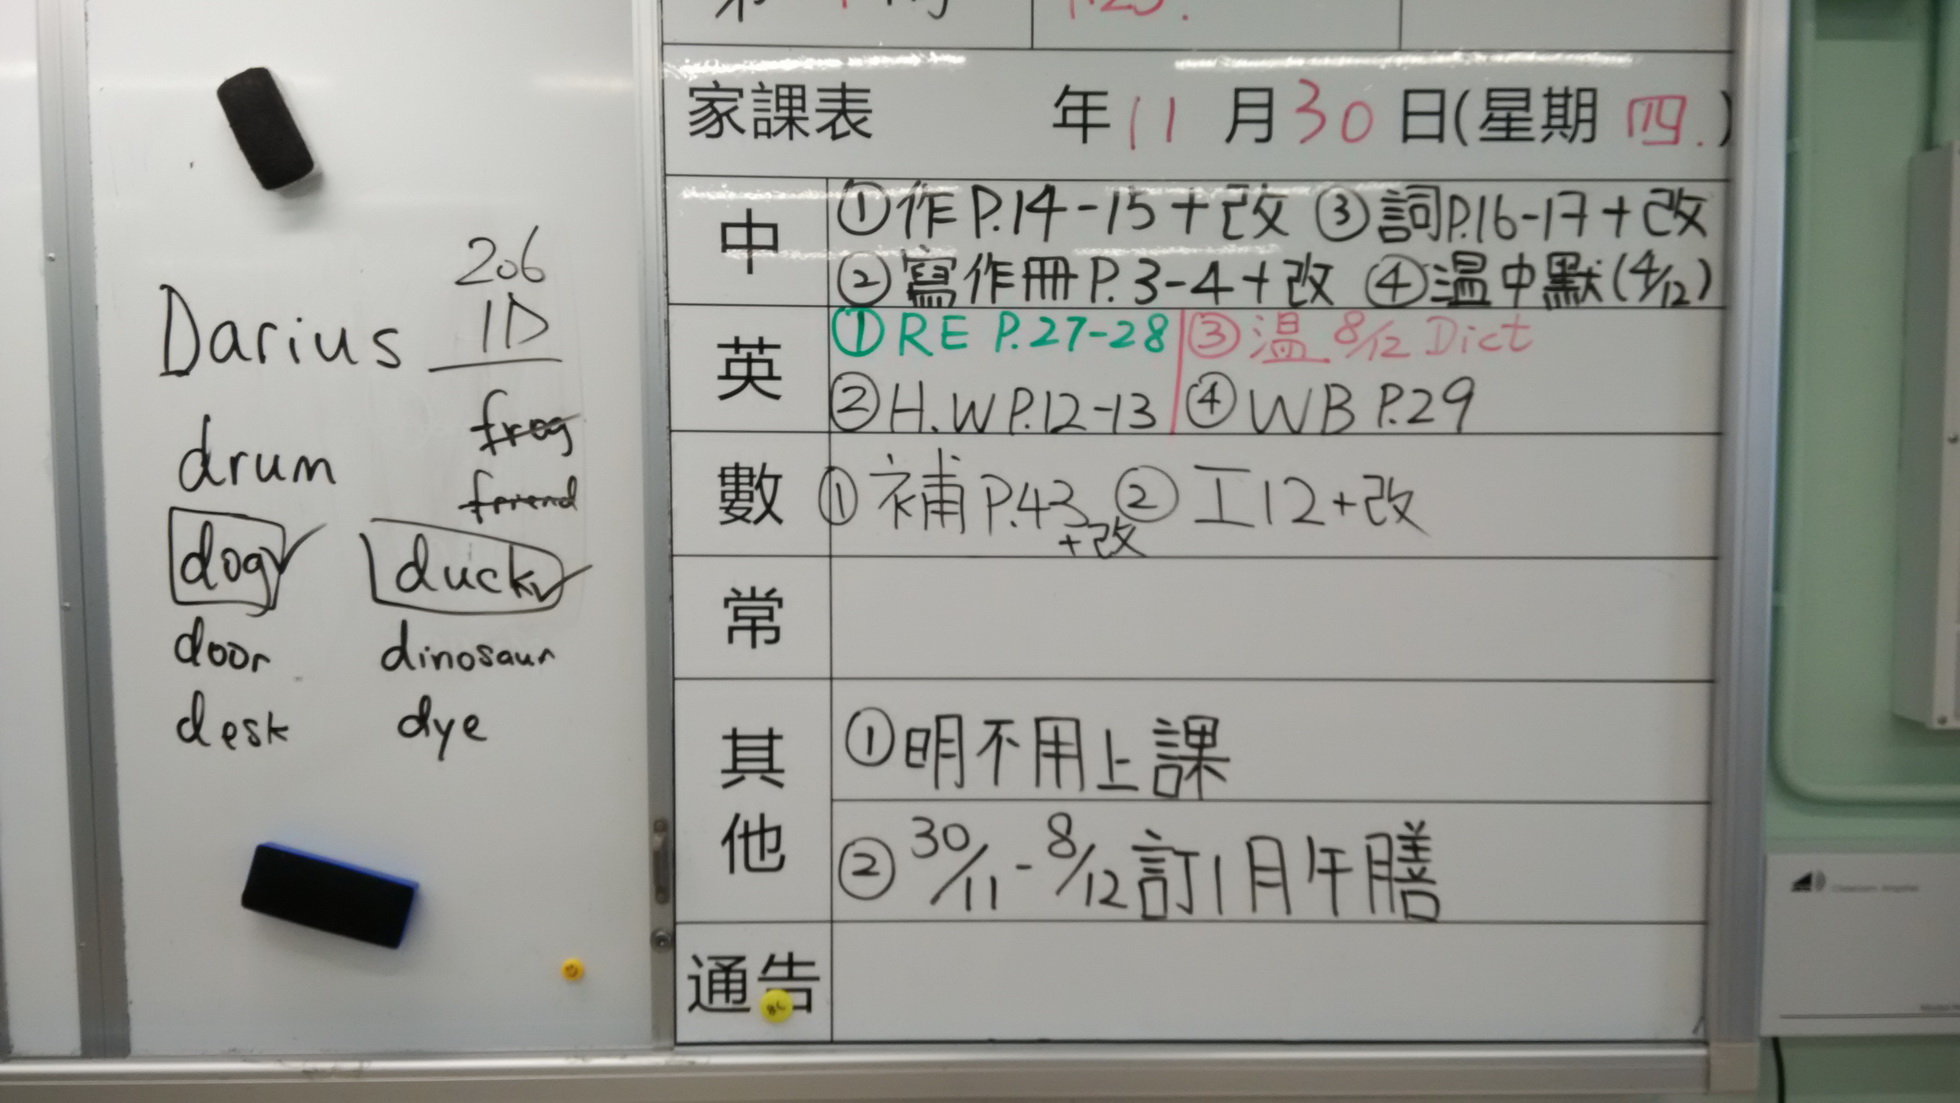 206
Darius 1D
drum frog
friend
dog duck
door dinosaur
desk dye
家課表 年 11 月 30 日(星期 四.)
中
①作P.14-15+改 ③詞P.16-17+改
②寫作冊P.3-4+改 ④溫中默(4/12)
英
①RE P.27-28 ③溫 8/12 Dict
②H.W P.12-13 ④WB P.29
數
①補P.43+改 ②工12+改
常
其他
①明不用上課
②30/11-8/12訂1月午膳
通告